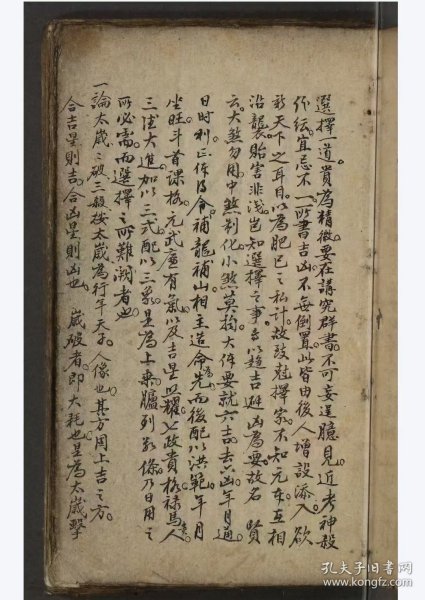 選擇一道貴為精微要在講究群書不可妄逞臆見近考神殺
紛紜宜忌不一所書吉凶不無倒置此皆由後人增設添入欲
新天下之耳目以為肥己之私計故致尅擇家不知元本互相
沿襲貽害非淺豈知選擇之事專以趨吉避凶為要故名賢
云大煞勿用中煞制化小煞莫拘大伴要就六吉去六凶年月通
日時利正伴為命補龍補山相主造命先而後配以洪範年月
坐旺斗首課格元武應有氣以及吉星照耀七政貴格祿馬人
三法大進加以三式配以三氣是為上乘臚列數條乃日用之
所必需而選擇之所難澗者也
一論太歲之破三般按太歲為行年天子人像也其方用上吉之方
合吉星則吉合凶星則凶也 歲破者即大耗也是為太歲擊
孔夫子旧书网
www.kongfz.com